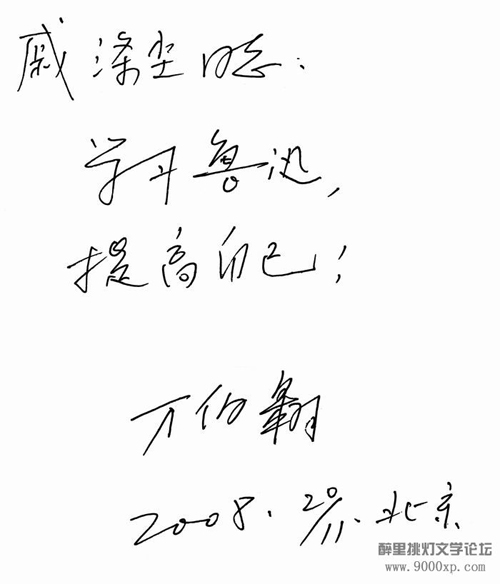 戚涤尘同志:
学习鲁迅,
提高自己!
万伯翱
2008.20/11.北京
醉里挑灯文学论坛
www.9000xp.com